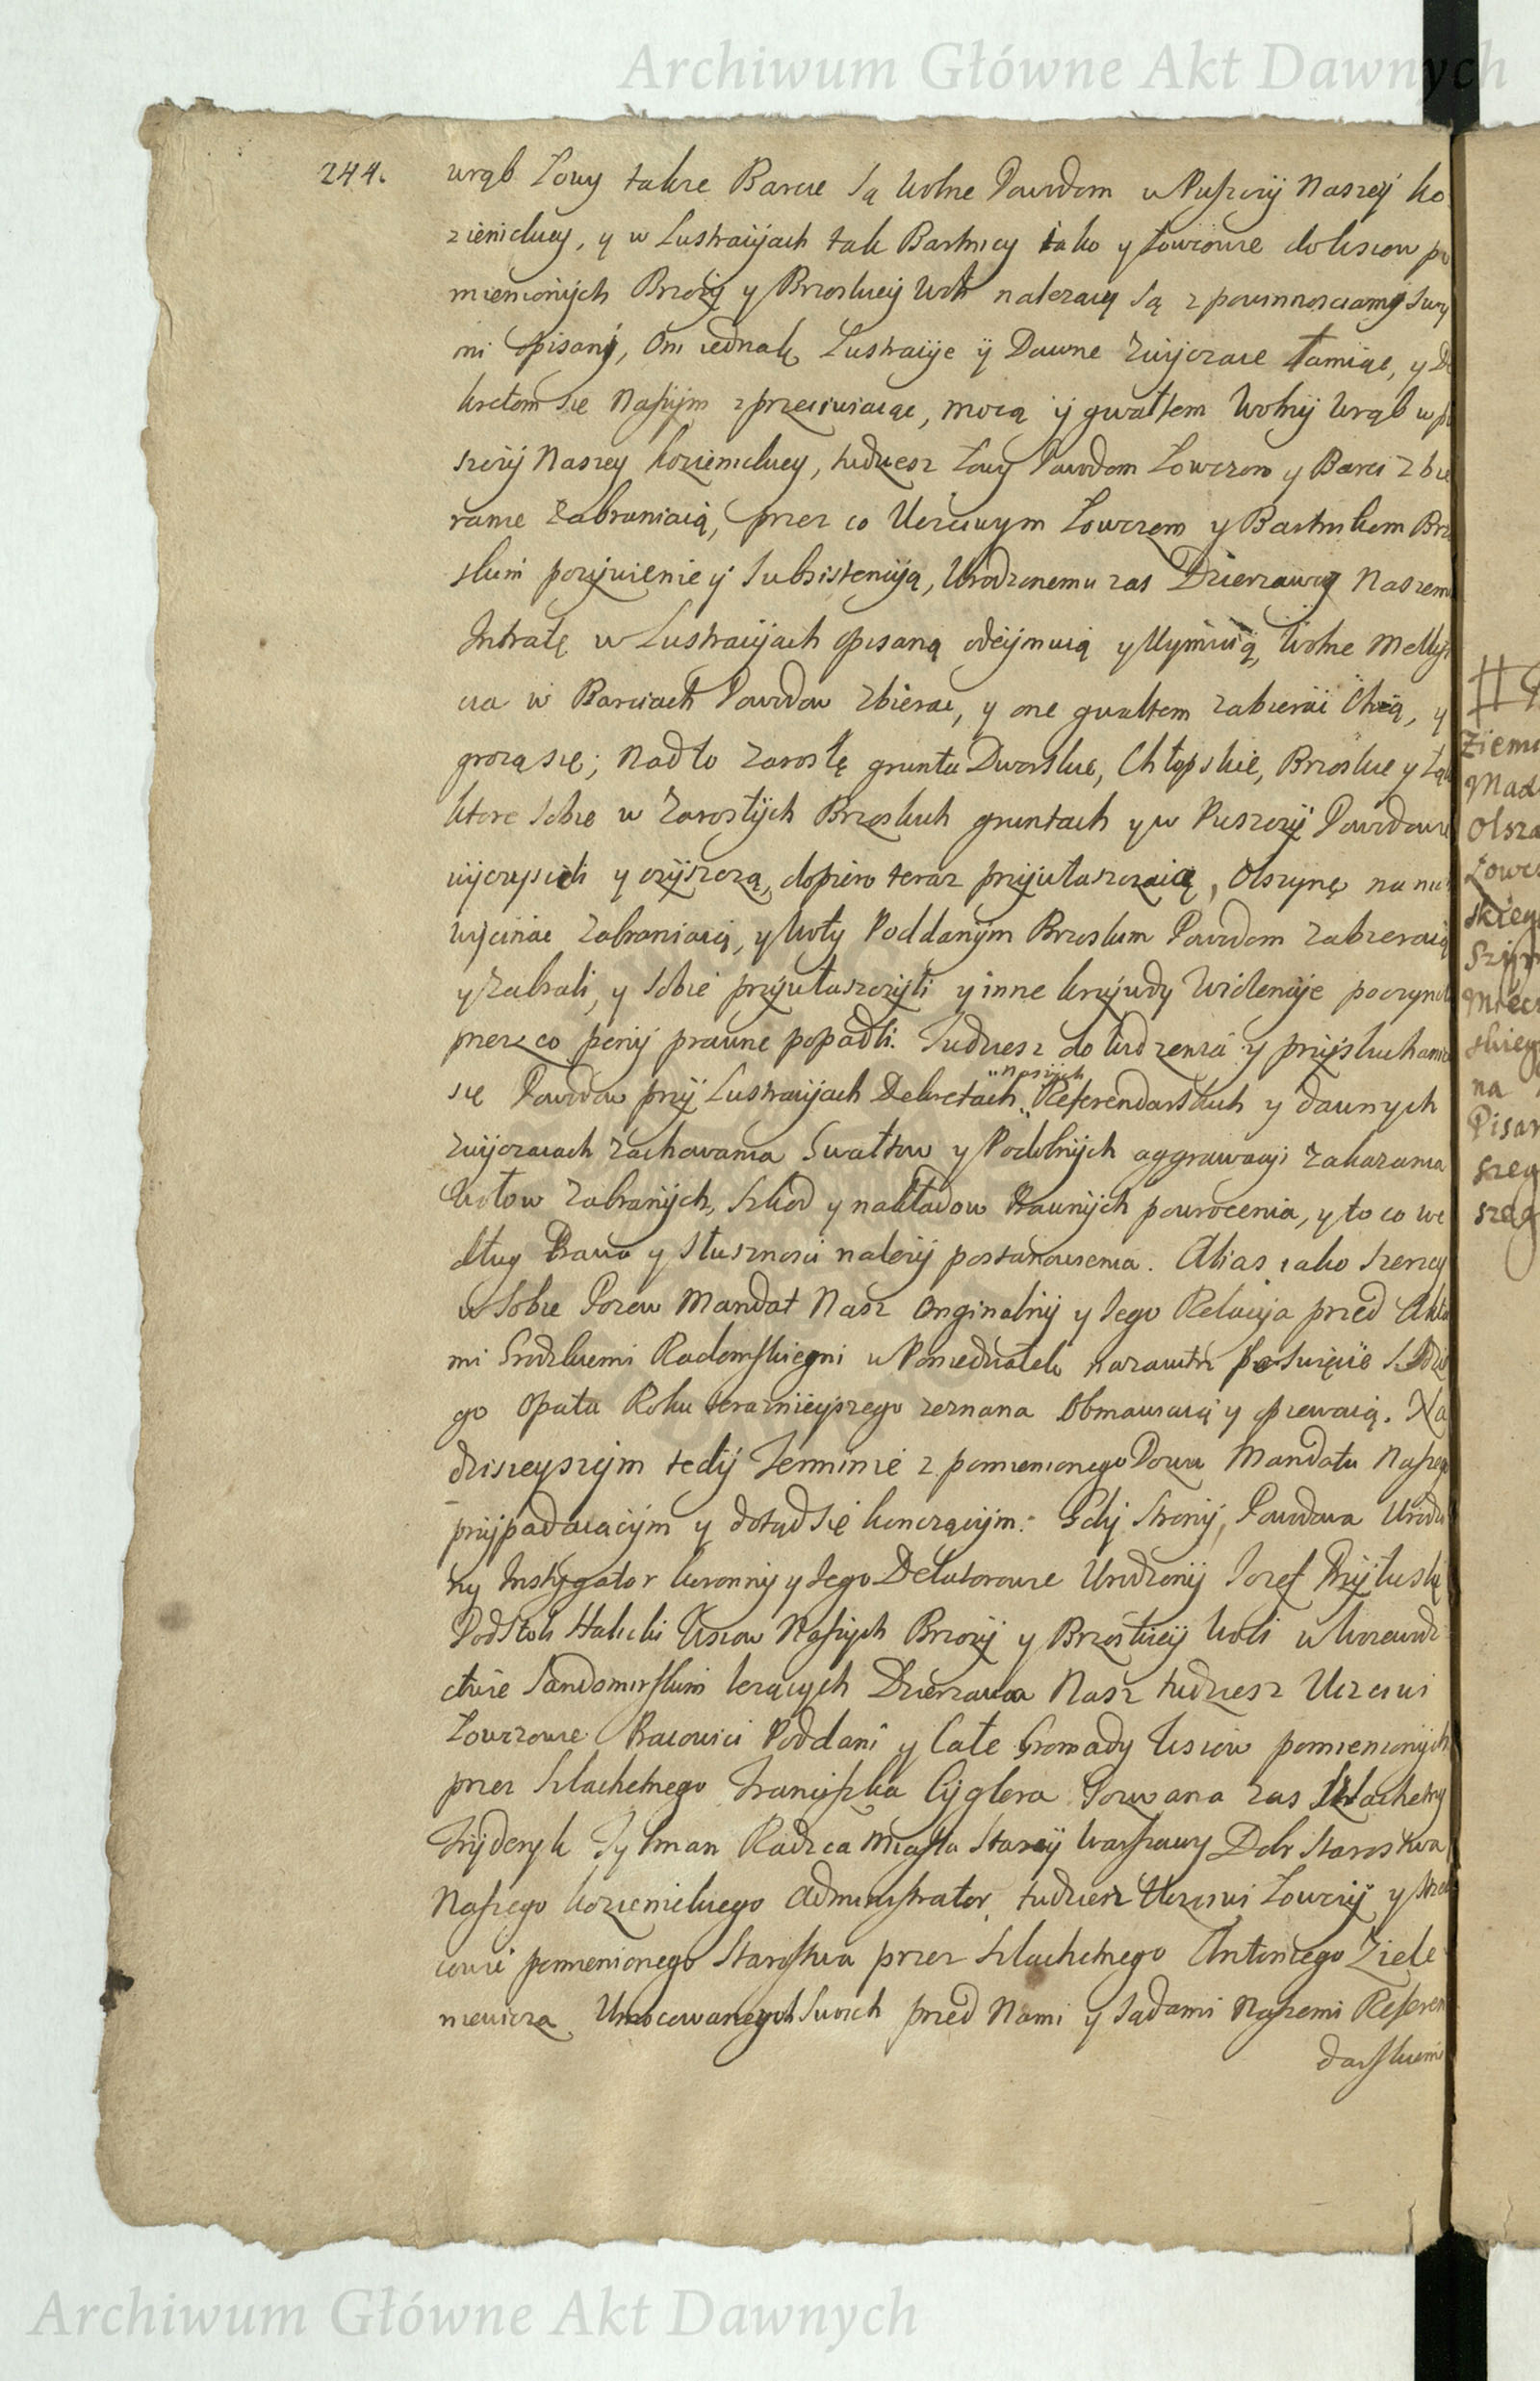 Archiwum Główne Akt Dawnych
244.
wrąb Łowy także Barcie są wolne Powodom w Puszczÿ Naszeÿ Ko
zienickiey, y w Lustracÿach tak Bartnicy iako y Łowcowie do wsiow po
mienionÿch Brzozÿ y Brzoskieÿ Woli nalezący są z powinnosciamÿ swy
mi opisanÿ, Oni iednak Lustracÿe ÿ Dawne zwÿczaie łamiąc, y De
kretom się Naszÿm zprzeciwiaiąc, mocą ÿ gwałtem Wolnÿ Wrąb w pu
szczÿ Naszey Kozienickiey, tudziesz Łowy Powodom Łowczem y Barci zbie
ranie zabraniaią, przez co Uczciwym Łowczem y Bartnikom Brzo
skim pozÿwienie ÿ Subsistencÿą, Urodzonemu zas Dzierzawcy Naszemu
Intratę w Lustracÿach opisaną odeÿmuią y Uÿmuią, Wolne Mellifi
cia w Barciach Powodow zbierac, y one gwałtem zabierac Chcą, y
grozą się; Nadto zarosłe grunta Dworskie, Chłopskie, Brzoskie y Łąki
ktore sobie w zarosłÿch Brzoskich gruntach y w Puszczÿ Powodowie
wÿczyscili y czÿszczą, dopiero teraz przÿwłaszczaią, Olszynę na
wÿcinac zabraniaią, y Woły Poddanÿm Brzoskim Powodom zabieraią
y zabrali, y sobie przÿwłaszczÿli y inne krzÿwdy Wiolencÿe poczynili
przez co penÿ prawne popadli. Tudziesz do Widzenia y przÿsłuchania
się Powodow przÿ Lustracÿach Dekretach „Naszÿch Referendarskich y dawnych
zwÿczaiach zachowania Gwałtow y Podobnÿch aggrawacÿi zakazania
Wołow zabranÿch, szkod y nakładow Prawnÿch powrocenia, y to co we
dług Prawa y słusznosci nalezÿ postanowienia. Alias iako szerzey
w sobie Pozew Mandat Nasz Orginalnÿ y Jego Relacÿa przed Akta
mi Grodzkiemi Radomskiemi w Poniedziałek nazaiutrz po Swięcie S. Idzie
go Opata Roku terazniejszego zeznana Obmawiaią y opiewaią. Na
dzisieyszÿm tedÿ Terminie z pomienionego Pozwu Mandatu Naszego
przÿpadaiącÿm y dotąd się konczącÿm. Gdÿ Stronÿ, Powodowa Urodzo
ny Instÿgator koronnÿ y Jego Delatorowie Urodzonÿ Jozef Przÿłuski
Podstoli Halicki Wsiow Naszÿch Brzozÿ y Brzoskieÿ Woli w Woiewodz
ctwie Sandomirskim lezących Dzierzawca Nasz tudziesz Uczciwi
Łowczowie Pracowici Poddani y Całe Gromady Wsiow pomienionÿch
przez Szlachetnego Francÿszka Cÿglera Pozwana zas Szlachetny
Frÿderyk Tylman Radzca Miasta Stareÿ Warszawy Dobr Starostwa
Naszego kozienickiego Administrator, tudziesz Uczciwi Łowczÿ y strze
lcowie pomienionego Starostwa przez Szlachetnego Antoniego Ziele
niewicza Umocowanych Swoich przed Nami y Sądami Naszemi Referen
darskiemi
Ziemi
Mad
Olsza
Łowcz
skieg
Szÿm
Miecz
skieg
na
Pisar
szeg
szeg
Archiwum Główne Akt Dawnych